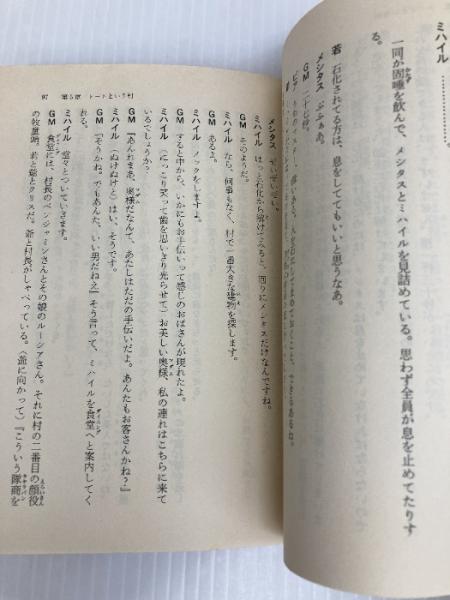 ミハイル …………。
一同が固唾を飲んで、メシタスとミハイルを見詰めている。思わず全員が息を止めてたりす
る。
若 石化されてる方は、息をしててもいいと思うなあ。
メシタス ぷふぁあ。
GM
メシタス ぜいぜいぜい。
ミハイル はっと石化から溶けてみると、回りにメシタスだけなんですね。
GM そのようだ。
ミハイル なら、何事もなく、村で一番大きな建物を探します。
GM あるよ。
ミハイル ノックをしますよ。
GM すると中から、いかにもお手伝いって感じのおばさんが現れたよ。
ミハイル （にっこり笑って歯を思いきり光らせて）お美しい奥様、私の連れはこちらに来て
いるでしょうか？
GM 『あんれまあ、奥様だなんて、あたしはただの手伝いだよ。あんたもお客さんかね？』
ミハイル （ぬけぬけと）はい、そうです。
GM 『そうかね。でもあんた、いい男だねえ』そう言って、ミハイルを食堂へと案内してく
れる。
ミハイル 堂々とついていきます。
GM 食堂には、村長のベンジャミンさんとその娘のルーシアさん。それに村の二番目の顔役
の牧童頭、若と爺とクリスだ。爺と村長がしゃべっている。（爺に向かって）『こういう隊商を
97 第5章 トートという村